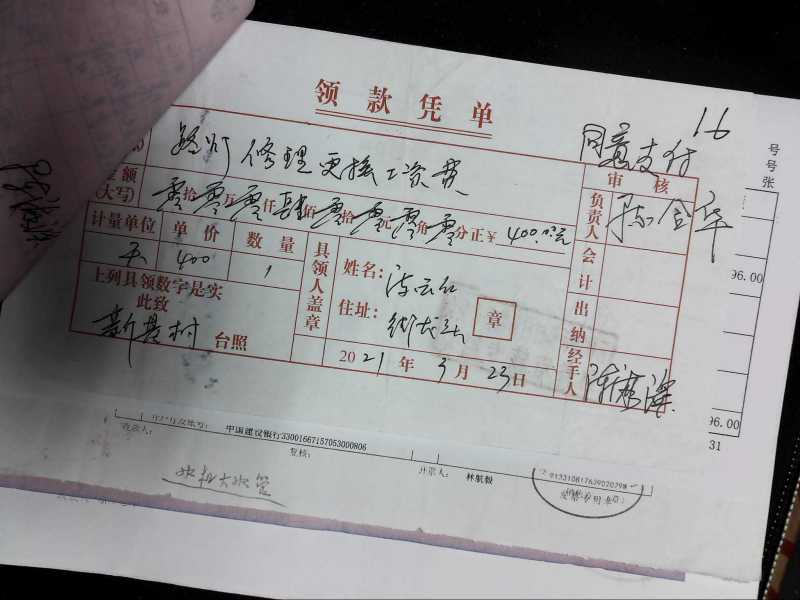 领款凭单
16
同意支付
路灯修理更换工资费
金额
(大写)
零拾零万零仟肆佰零拾零元零角零分正¥400.00元
计量单位 单价 数量
天 400 1
上列具领数字是实
此致
新
村 台照
具领人盖章
姓名:
住址:
章
2021年3月23日
审核
负责人
陈金华
会计
出纳
经手人
号
号
张
96.00
96.00
31
中国建设银行33001667157053000806
收款人:
复核:
开票人: 林航毅
发票专用章